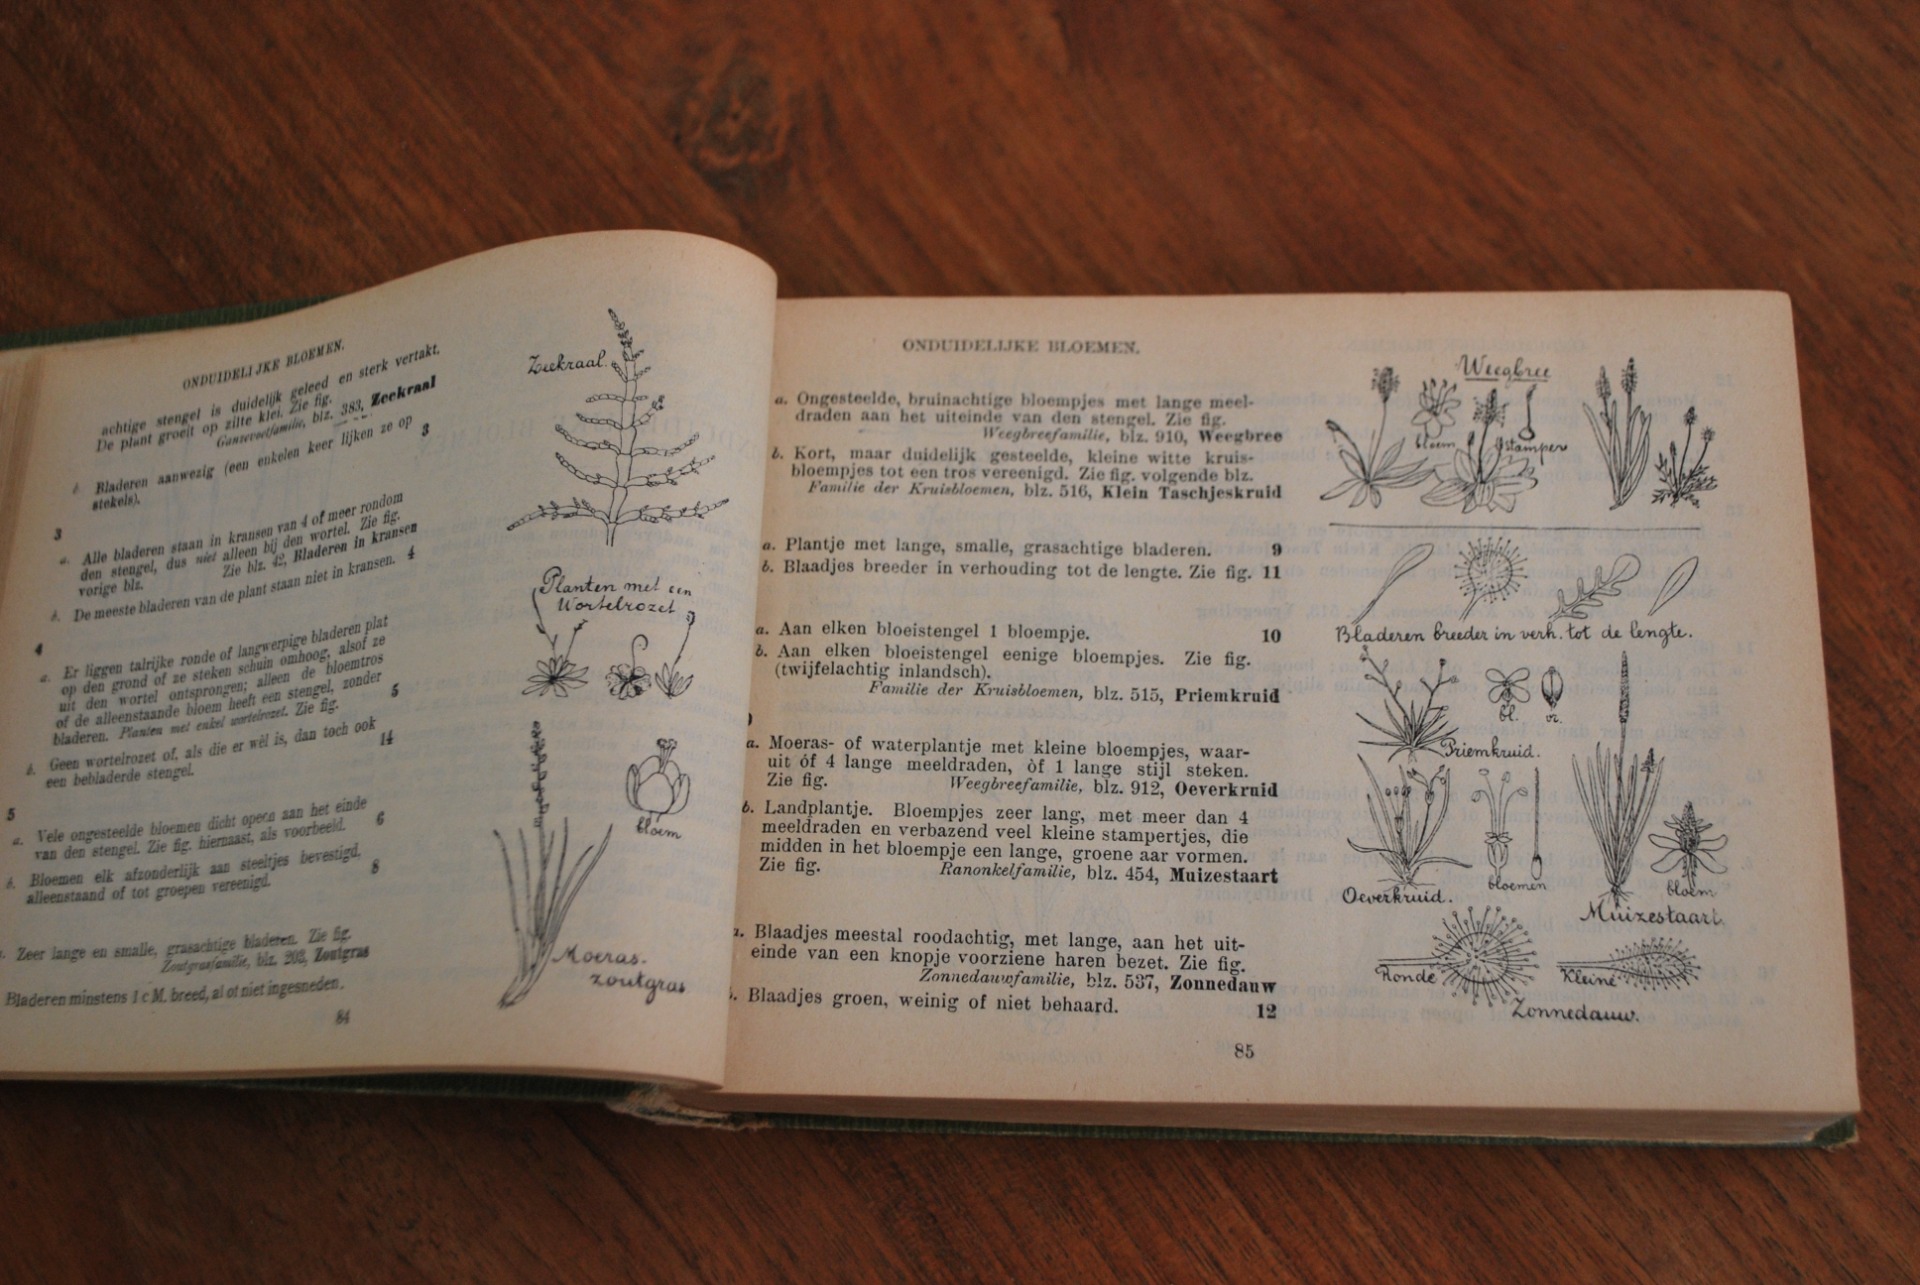 ONDUIDELIJKE BLOEMEN.
achtige stengel is duidelijk geleed en sterk vertakt.
De plant groeit op zilte klei. Zie fig.
Ganzevoetfamilie, blz. 383, Zeekraal
b. Bladeren aanwezig (een enkelen keer lijken ze op 3
stekels).
3
a. Alle bladeren staan in kransen van 4 of meer rondom
den stengel, dus niet alleen bij den wortel. Zie fig.
vorige blz. Zie blz. 42, Bladeren in kransen
b. De meeste bladeren van de plant staan niet in kransen. 4
4
a. Er liggen talrijke ronde of langwerpige bladeren plat
op den grond of ze steken schuin omhoog, alsof ze
uit den wortel ontsprongen; alleen de bloemtros
of de alleenstaande bloem heeft een stengel, zonder
bladeren. Planten met enkel wortelrozet. Zie fig. 5
b. Geen wortelrozet of, als die er wèl is, dan toch ook
een bebladerde stengel. 14
5
a. Vele ongesteelde bloemen dicht opeen aan het einde
van den stengel. Zie fig. hiernaast, als voorbeeld. 6
b. Bloemen elk afzonderlijk aan steeltjes bevestigd,
alleenstaand of tot groepen vereenigd. 8
Zeer lange en smalle, grasachtige bladeren. Zie fig.
Zoutgrasfamilie, blz. 203, Zoutgras
Bladeren minstens 1 cM. breed, al of niet ingesneden.
84
Zeekraal.
Planten met een
Wortelrozet
bloem
Moeras-
zoutgras
ONDUIDELIJKE BLOEMEN.
a. Ongesteelde, bruinachtige bloempjes met lange meel-
draden aan het uiteinde van den stengel. Zie fig.
Weegbreefamilie, blz. 910, Weegbree
b. Kort, maar duidelijk gesteelde, kleine witte kruis-
bloempjes tot een tros vereenigd. Zie fig. volgende blz.
Familie der Kruisbloemen, blz. 516, Klein Taschjeskruid
a. Plantje met lange, smalle, grasachtige bladeren. 9
b. Blaadjes breeder in verhouding tot de lengte. Zie fig. 11
a. Aan elken bloeistengel 1 bloempje. 10
b. Aan elken bloeistengel eenige bloempjes. Zie fig.
(twijfelachtig inlandsch).
Familie der Kruisbloemen, blz. 515, Priemkruid
a. Moeras- of waterplantje met kleine bloempjes, waar-
uit óf 4 lange meeldraden, òf 1 lange stijl steken.
Zie fig. Weegbreefamilie, blz. 912, Oeverkruid
b. Landplantje. Bloempjes zeer lang, met meer dan 4
meeldraden en verbazend veel kleine stampertjes, die
midden in het bloempje een lange, groene aar vormen.
Zie fig. Ranonkelfamilie, blz. 454, Muizestaart
a. Blaadjes meestal roodachtig, met lange, aan het uit-
einde van een knopje voorziene haren bezet. Zie fig.
Zonnedauwfamilie, blz. 537, Zonnedauw
b. Blaadjes groen, weinig of niet behaard. 12
85
Weegbree
bloem stamper
Bladeren breeder in verh. tot de lengte.
bl. vr.
Priemkruid.
bloemen
bloem
Oeverkruid.
Muizestaart.
Ronde Kleine
Zonnedauw.